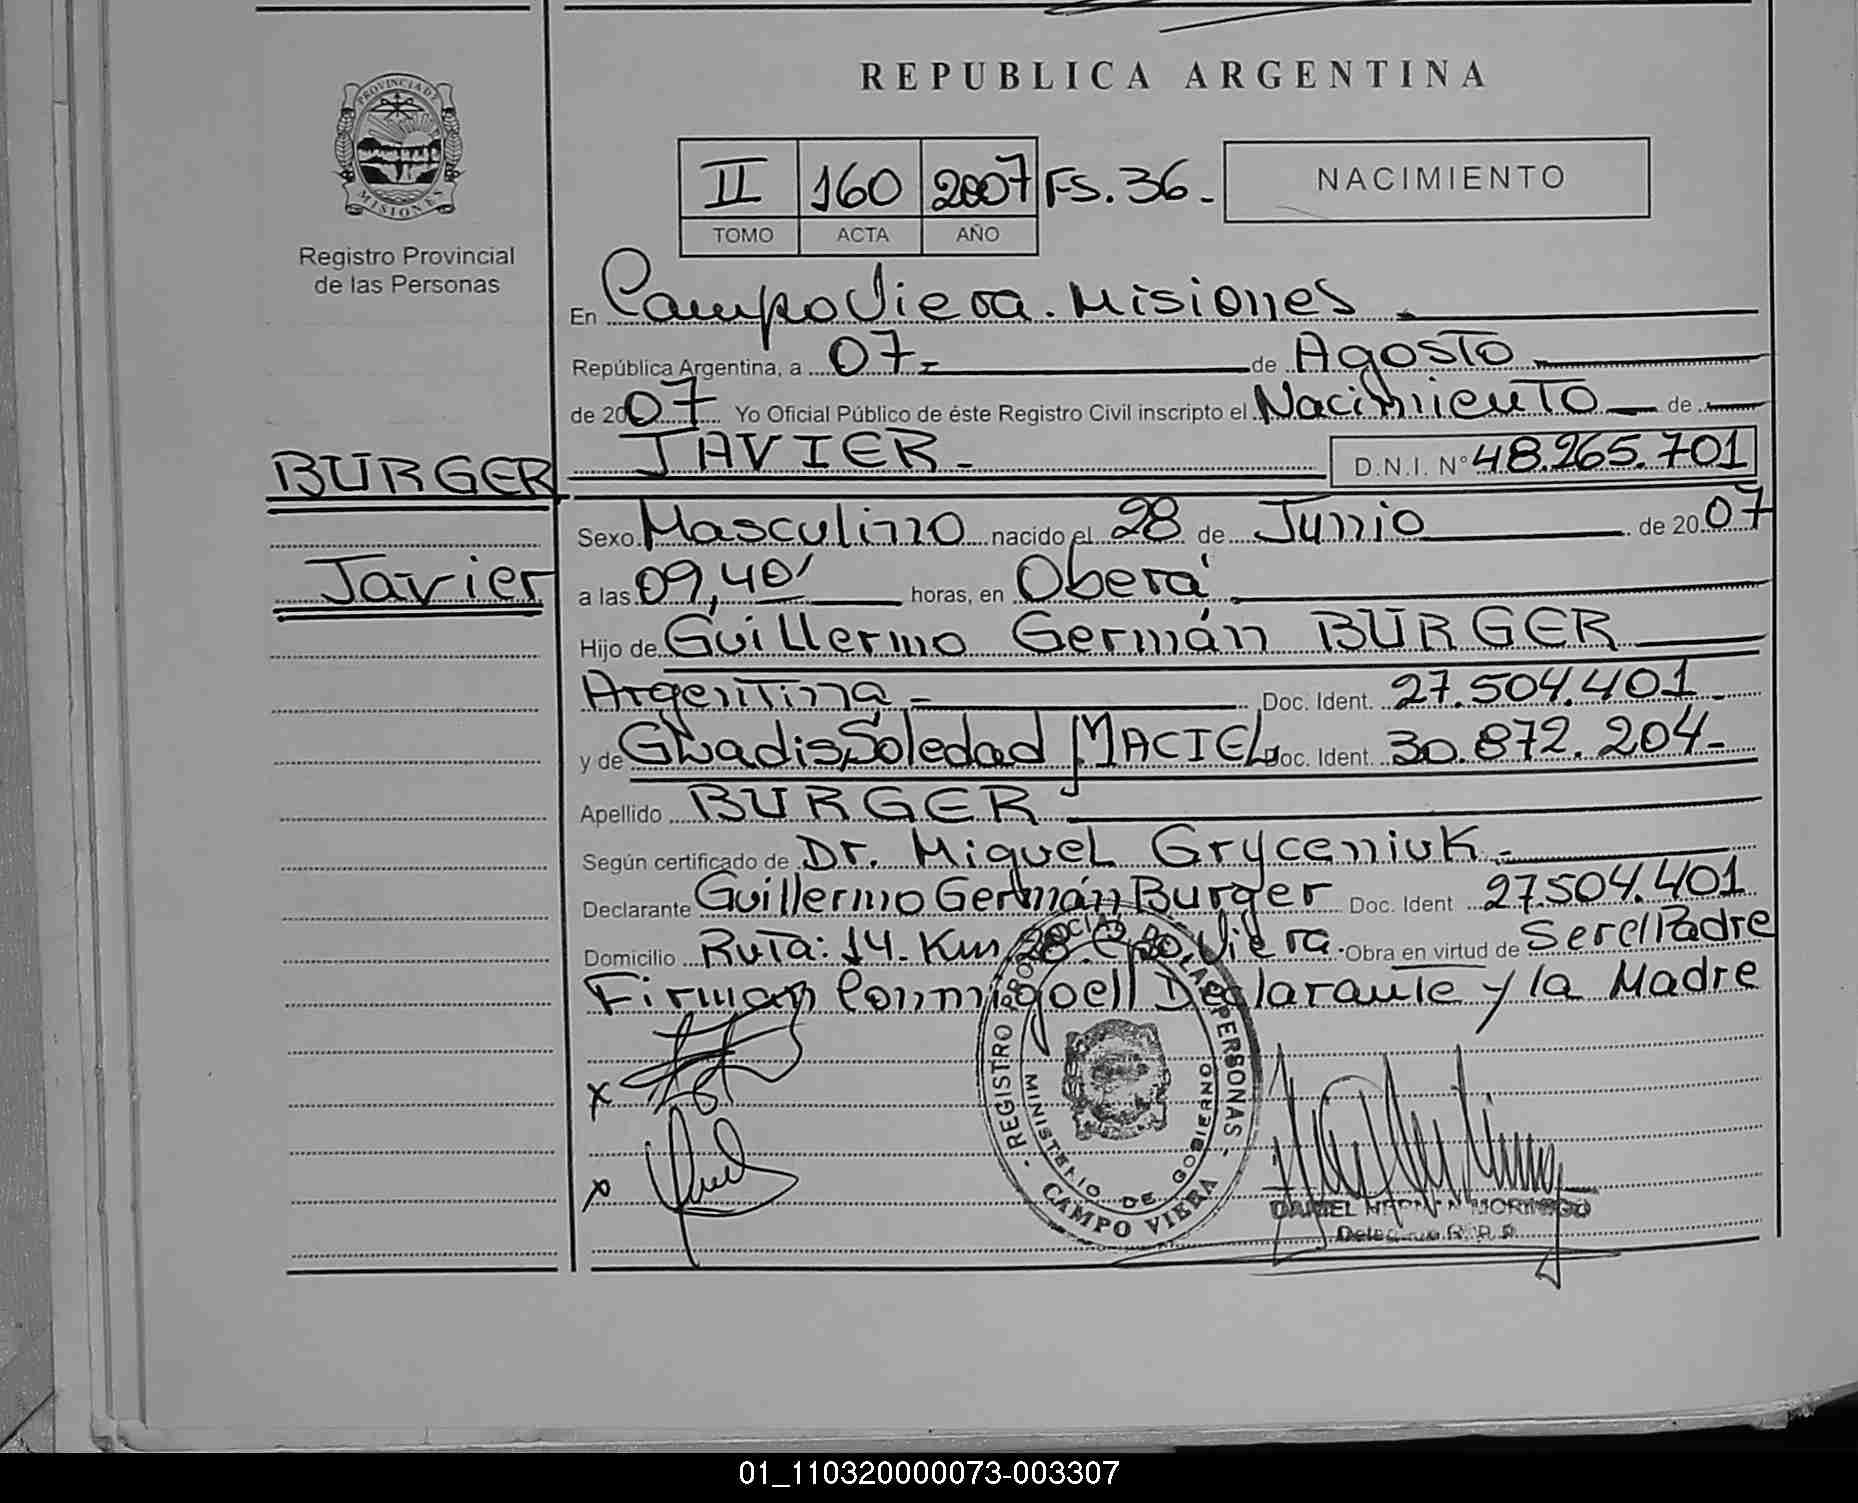 REPUBLICA ARGENTINA
PROVINCIA DE MISIONES
Registro Provincial
de las Personas
II 160 2007 FS. 36.-
TOMO ACTA AÑO
NACIMIENTO
En Campo Viera. Misiones.
República Argentina, a 07.- de Agosto
de 2007 Yo Oficial Público de éste Registro Civil inscripto el Nacimiento de
JAVIER - D.N.I. N° 48.265.701
BURGER
Sexo Masculino nacido el 28 de Junio de 2007
Javier
a las 09,40' horas, en Oberá
Hijo de Guillermo Germán BURGER
Argentina - Doc. Ident. 27.504.401
y de Gladis Soledad MACIEL Doc. Ident. 30.872.204-
Apellido BURGER
Según certificado de Dr. Miguel Gryceniuk -
Declarante Guillermo Germán Burger Doc. Ident 27.504.401
Domicilio Ruta: 14. Km 28. Cpo. Viera. Obra en virtud de Ser el Padre
Firman Conmigo el Declarante y la Madre
x
x
- REGISTRO PROVINCIAL DE LAS PERSONAS -
MINISTERIO DE GOBIERNO
CAMPO VIERA
DANIEL
01_110320000073-003307